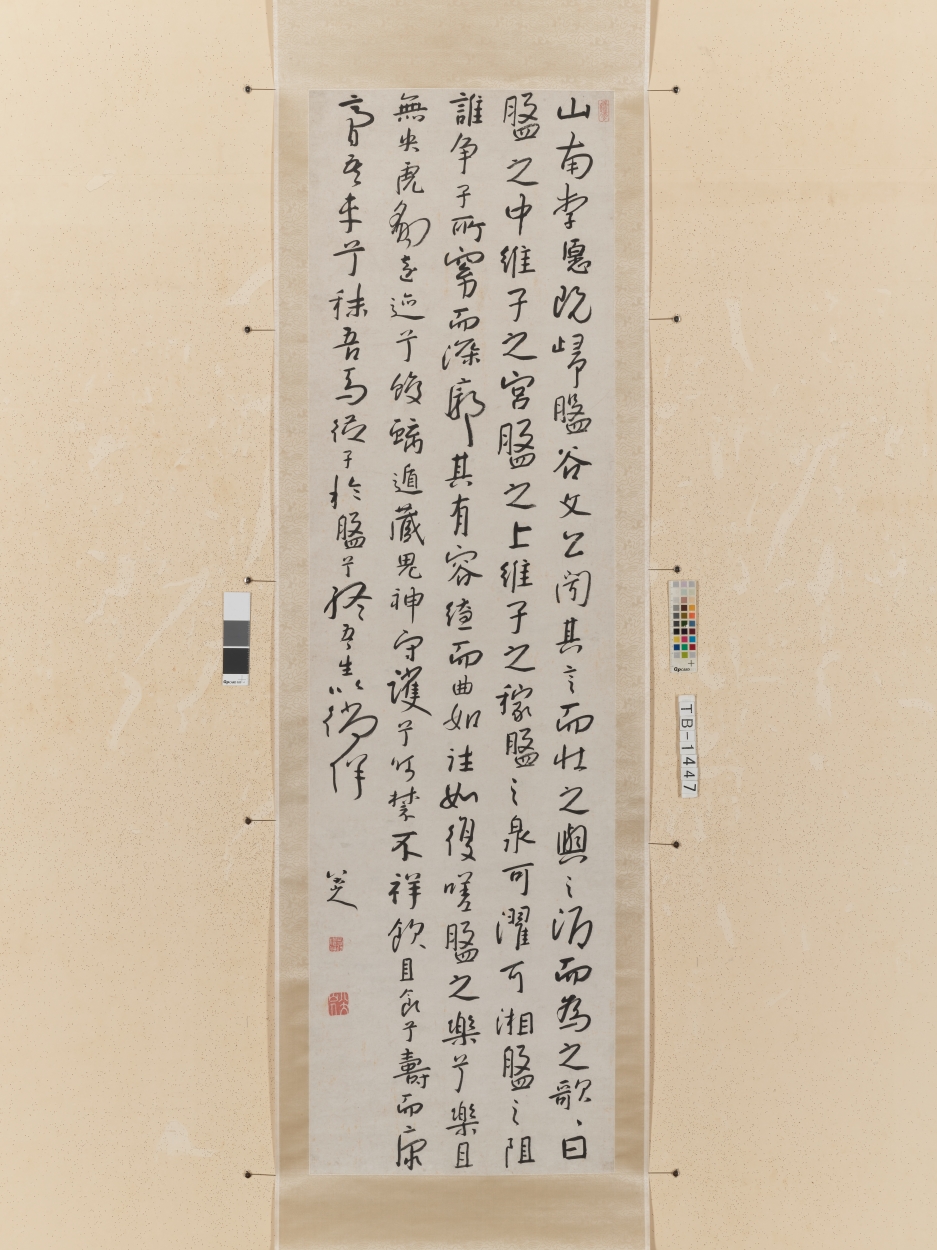 山南李愿既歸盤谷文公聞其言而壯之與之酒而為之歌、曰
盤之中維子之宮盤之上維子之稼盤之泉可濯可湘盤之阻
誰争子所窈而深廓其有容繚而曲如往如復嗟盤之樂兮樂且
無央虎豹遠迹兮蛟螭遁藏鬼神守護兮呵禁不祥飲且食兮壽而康
膏吾車兮秣吾馬從子於盤兮終吾生以徜徉
八大山人
TB-1447